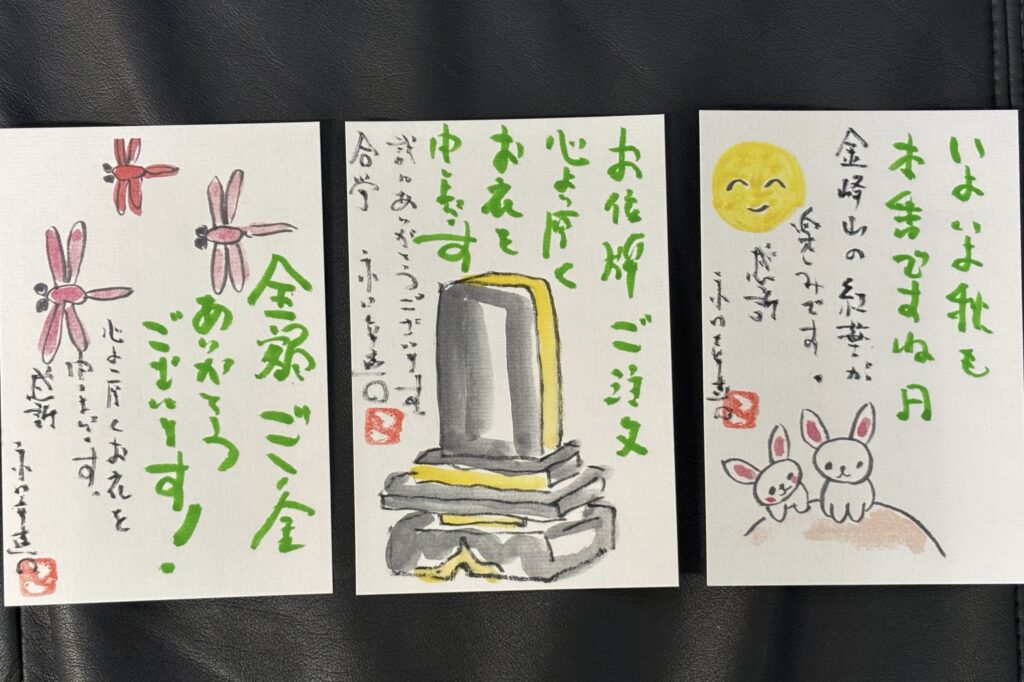 全額ご入金
ありがとう
ございます!
心より厚くお礼を
申し上げます。
感謝
お位牌 ご注文
心より厚く
お礼を
申し上げます
誠にありがとうございます。
合掌
いよいよ秋も
本番ですね
金峰山の紅葉が
楽しみです。
感謝